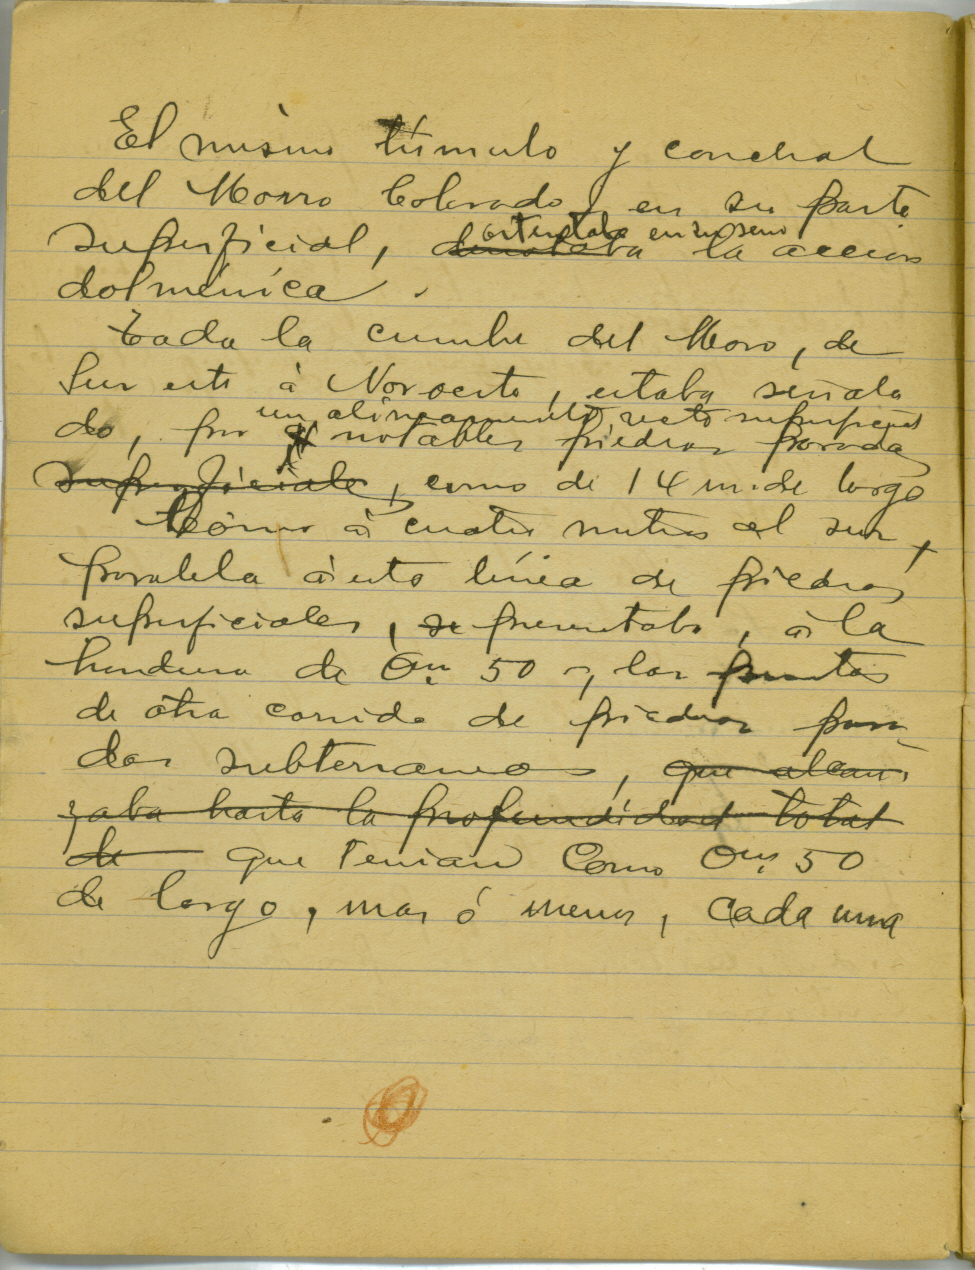 El mismo túmulo y conchal
del Morro Colorado, en su parte
superficial, denotaba ostentaba en su seno la accion
dolménica.
Toda la cumbre del Morro, de
Sur este á Noroeste, estaba señala
un alineamiento recto superficial
do, por notables piedras paradas
superficiales, como de 14 m. de largo
Cómo á cuatro metros al sur,
paralela á esta línea de piedras
superficiales, se presentaba, á la
hondura de 0m. 50, las puntas
de ótra corrida de piedras para-
das subterraneas, que alcan-
zaba hasta la profundidad total
de que tenian Como 0m. 50
de largo, mas ó menos, cada una